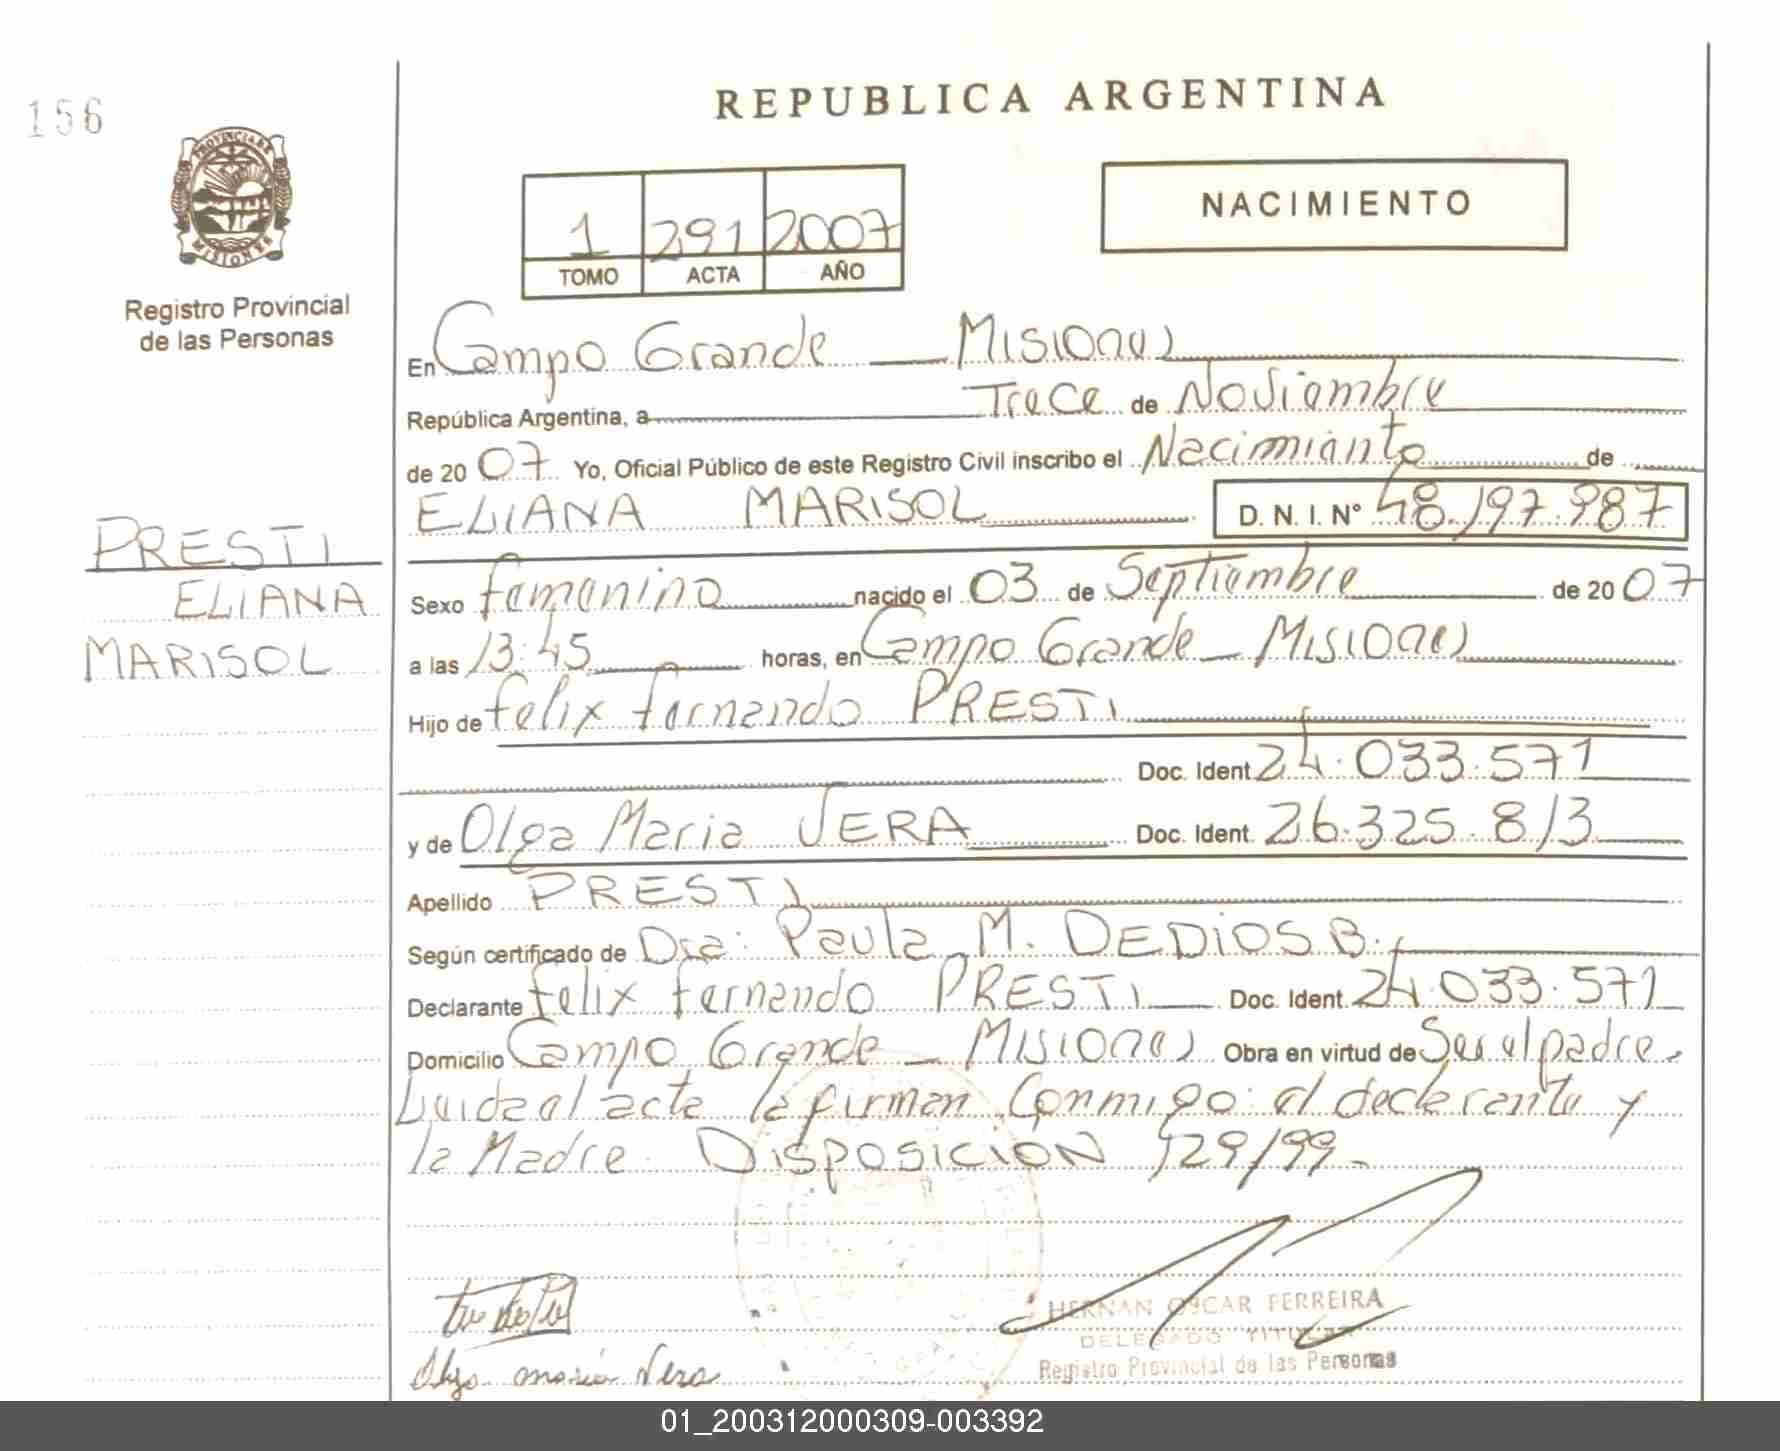 156
REPUBLICA ARGENTINA
PROVINCIA DE
MISIONES
Registro Provincial
de las Personas
1 291 2007
TOMO ACTA AÑO
NACIMIENTO
En Campo Grande — Misiones
República Argentina, a Trece de Noviembre
de 2007 Yo, Oficial Público de este Registro Civil inscribo el Nacimiento de
ELIANA MARISOL D. N. I. Nº 48.197.987
PRESTI
ELIANA
MARISOL
Sexo femenino nacido el 03 de Septiembre de 2007
a las 13:45 horas, en Campo Grande — Misiones
Hijo de felix fernando PRESTI
Doc. Ident. 24.033.571
y de Olga Maria VERA Doc. Ident. 26.325.813
Apellido PRESTI
Según certificado de Dra: Paula M. DEDIOS B.
Declarante felix fernando PRESTI Doc. Ident. 24.033.571
Domicilio Campo Grande — Misiones Obra en virtud de Ser el padre.
Leida el acta la firman conmigo: el declarante y
la Madre. DISPOSICION 129/99-
HERNAN OSCAR FERREIRA
DELEGADO TITULAR
Registro Provincial de las Personas
Olga maria Vera
01_200312000309-003392